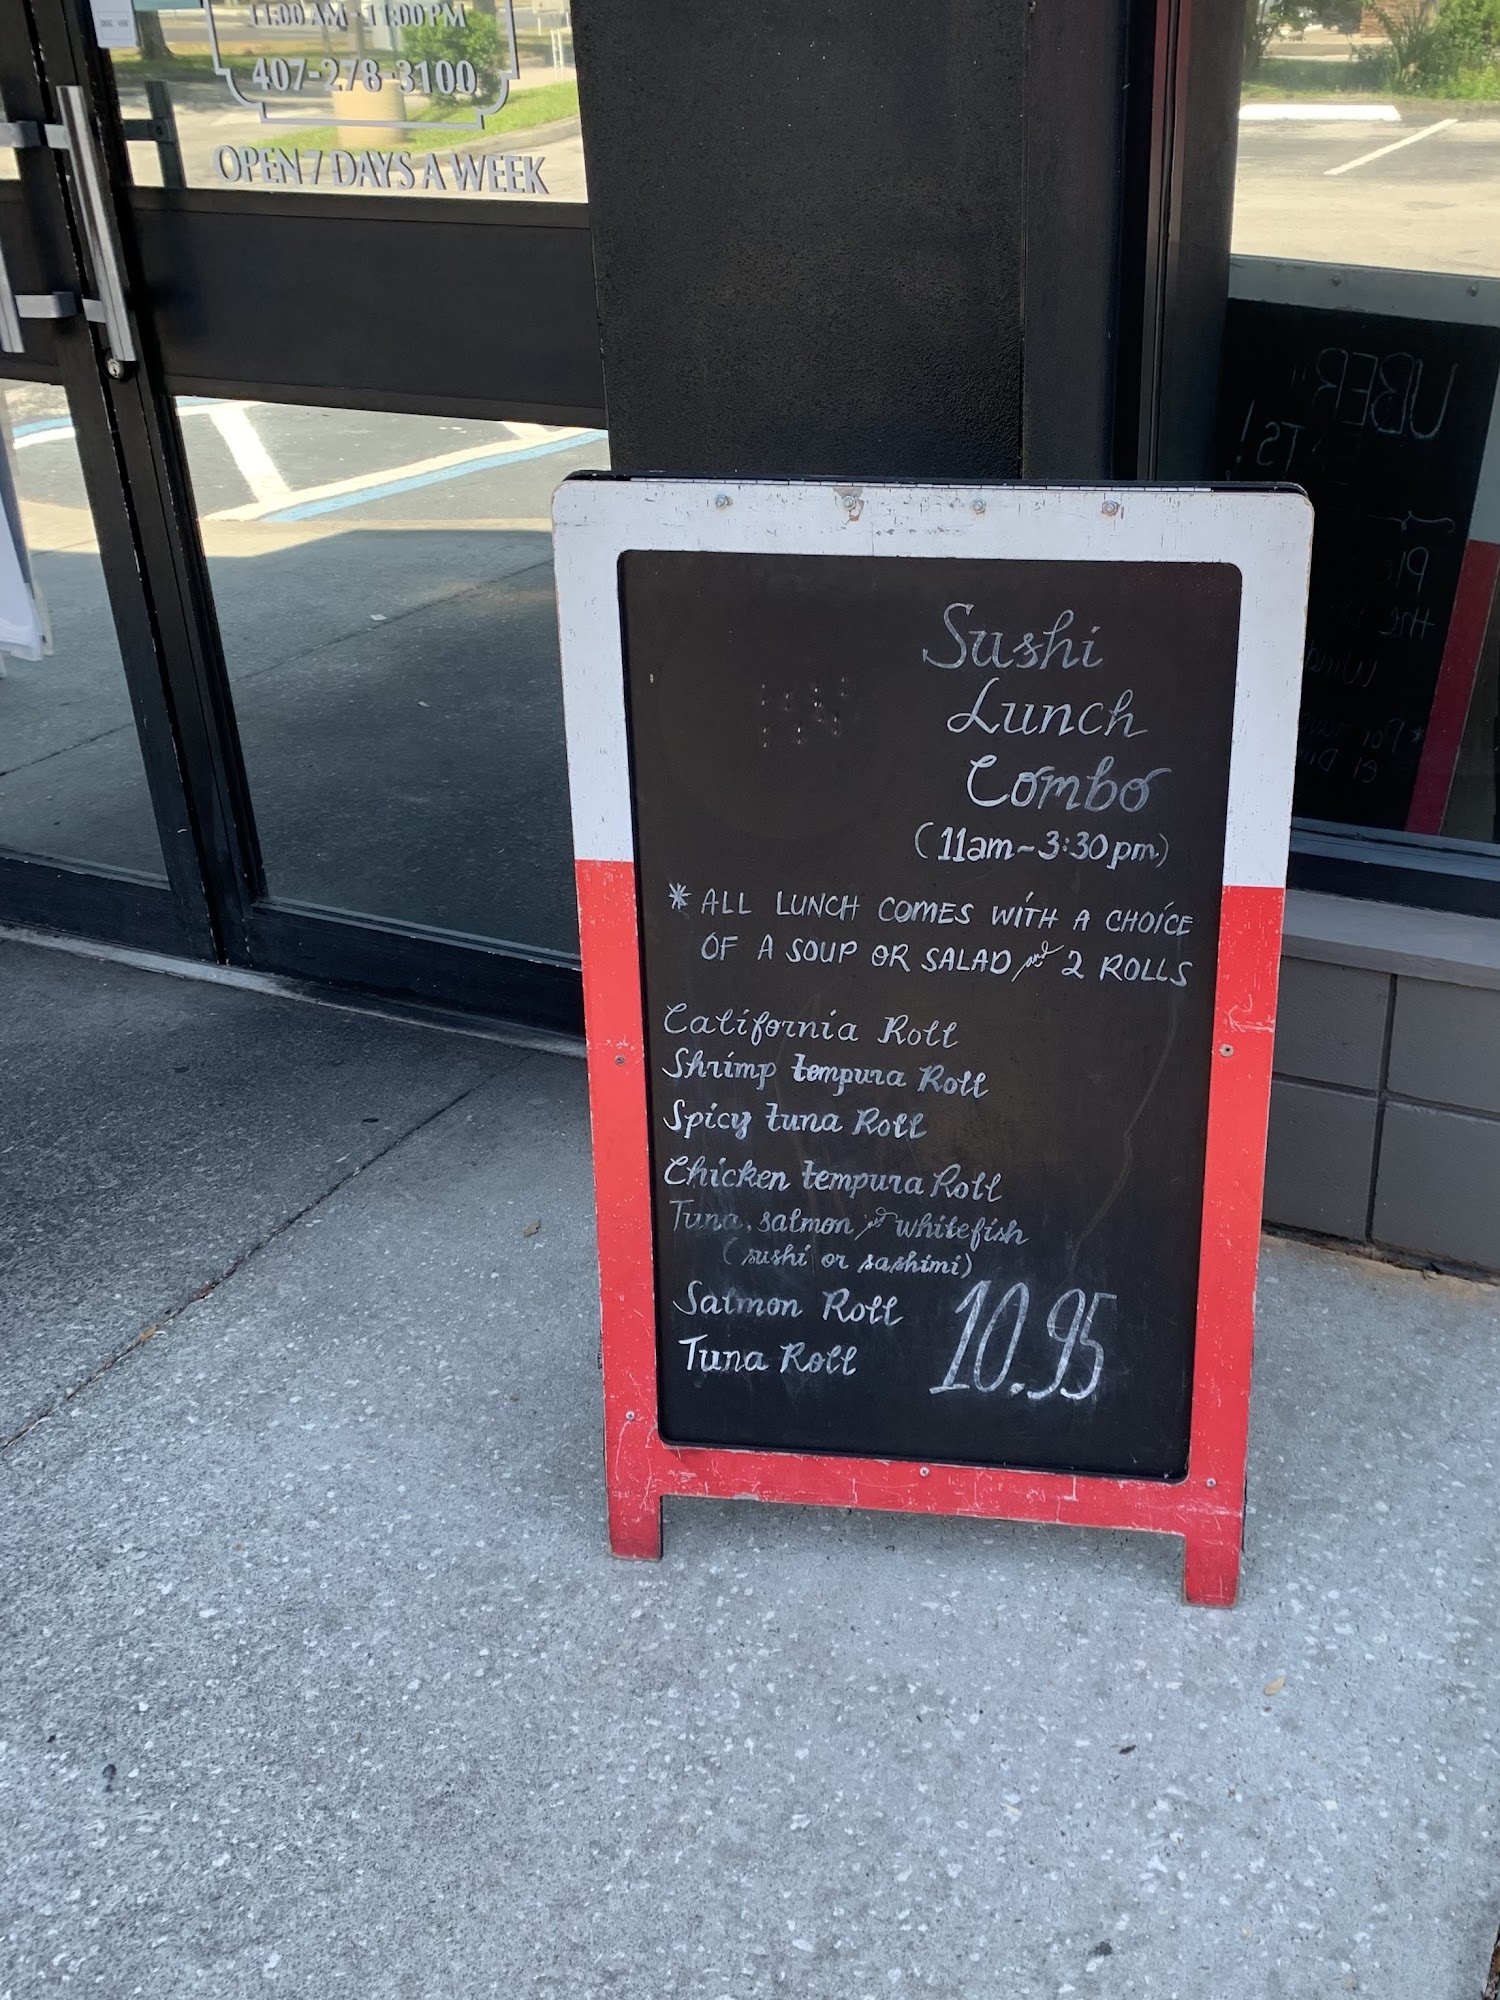 11:00 AM - 11:00 PM
407-278-3100
OPEN 7 DAYS A WEEK
UBER
Sushi
Lunch
Combo
(11am~3:30pm)
* ALL LUNCH COMES WITH A CHOICE
OF A SOUP OR SALAD and 2 ROLLS
California Roll
Shrimp tempura Roll
Spicy tuna Roll
Chicken tempura Roll
Tuna, salmon and whitefish
(sushi or sashimi)
Salmon Roll
Tuna Roll
10.95